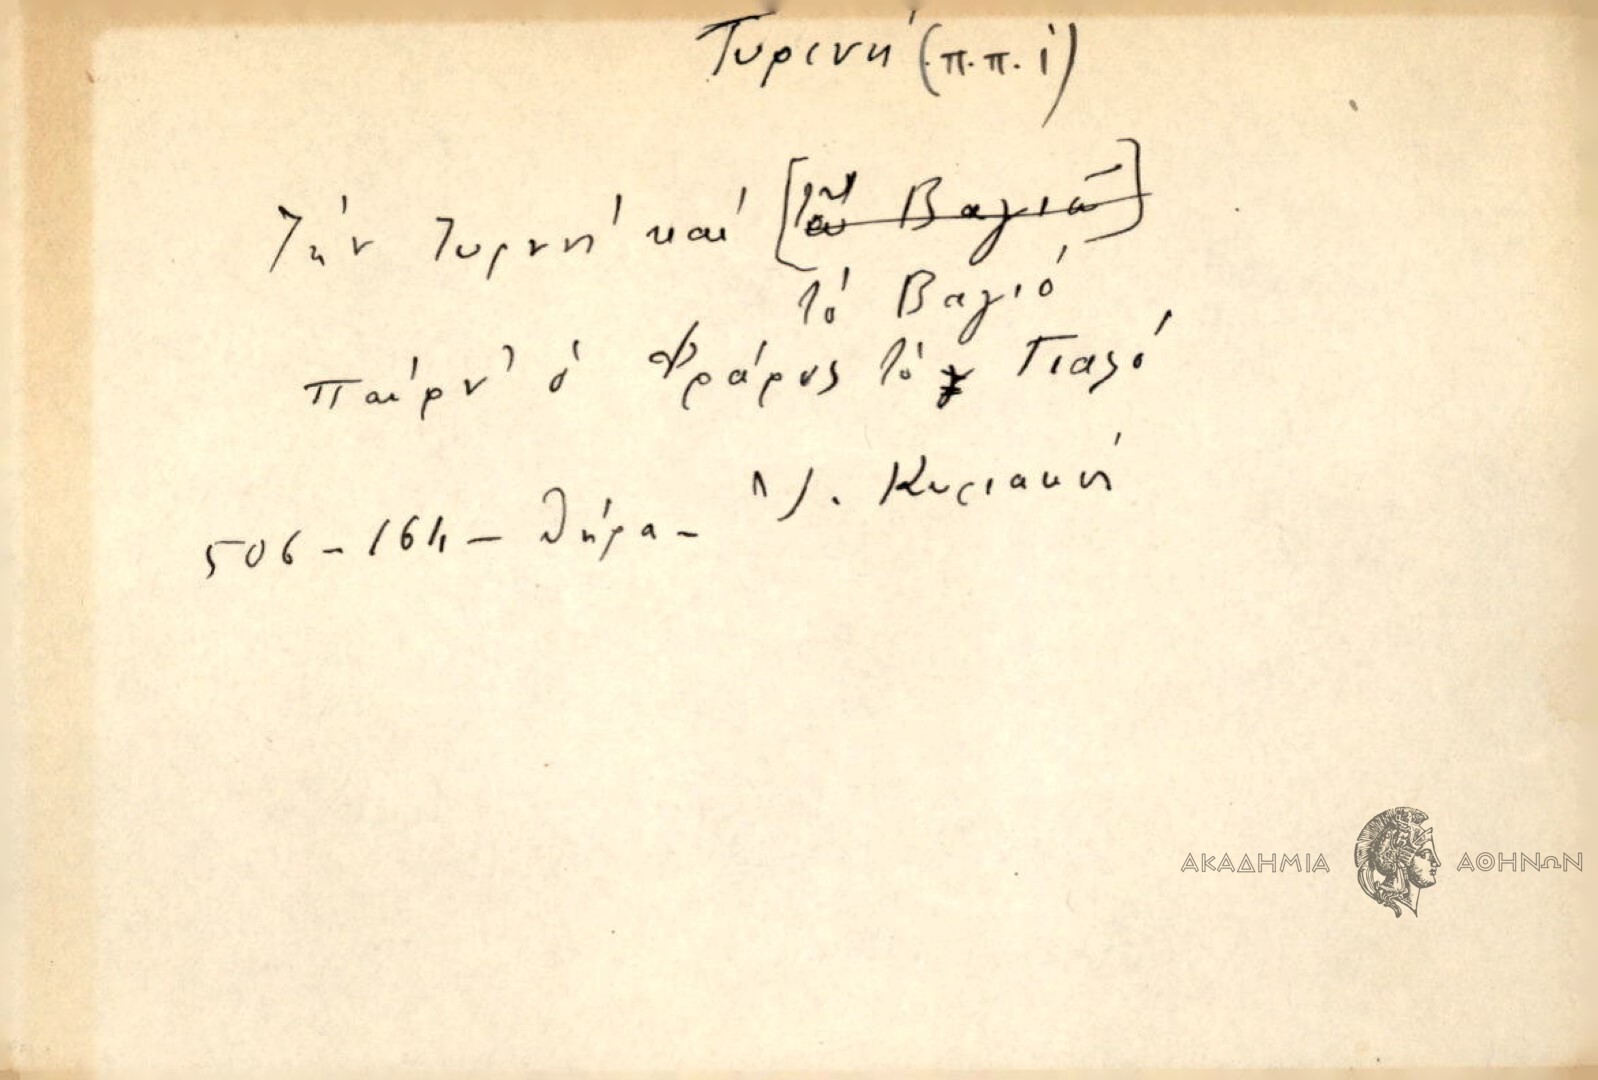 Τυρινή (π.π. ἰ)
Τήν Τυρνή καί [τῶ Βαγιῶ]
τό Βαγιό
παίρν' ὁ ψάρης τό Γιαλό
506-164 - Θήρα -
Κυριακή
ΑΚΑΔΗΜΙΑ ΑΘΗΝΩΝ